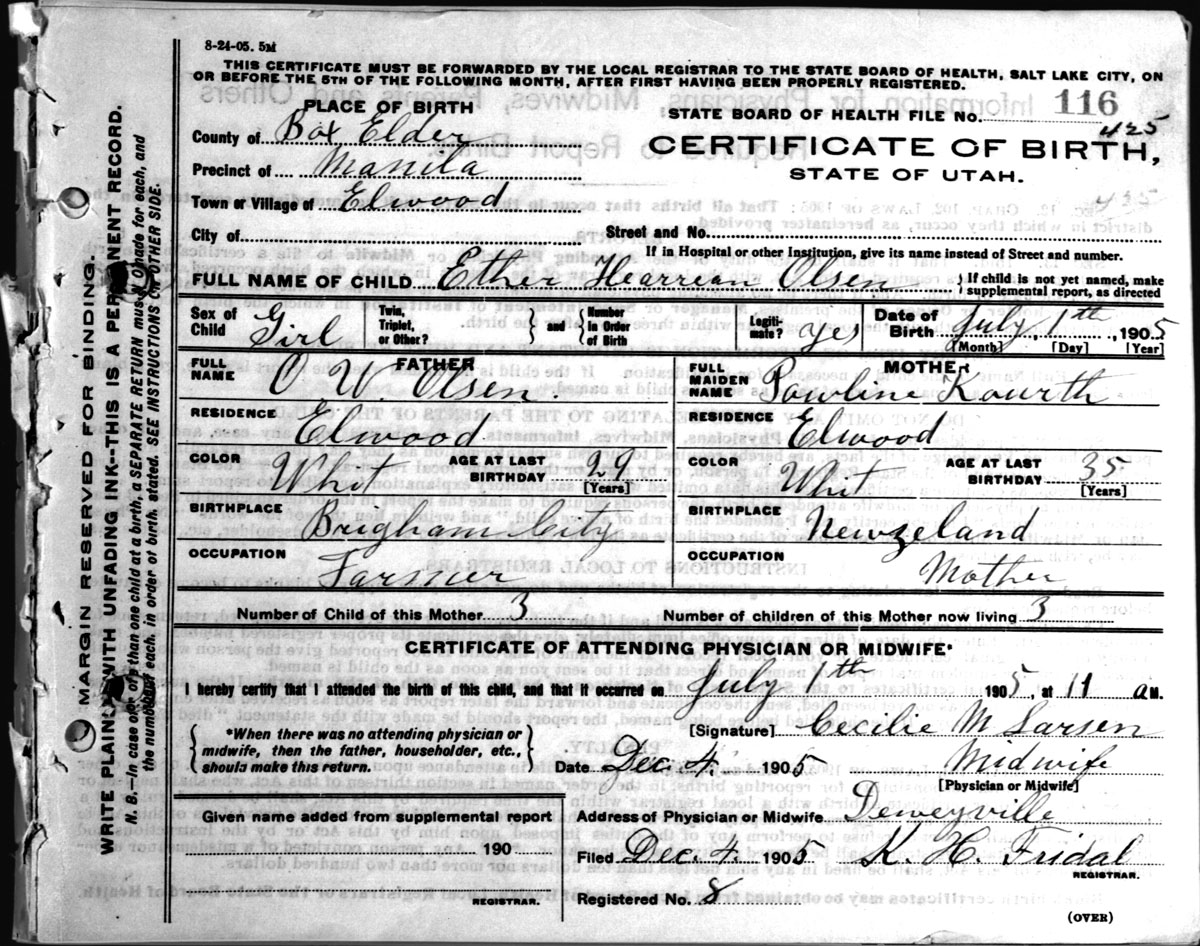 8-24-05. 5M
THIS CERTIFICATE MUST BE FORWARDED BY THE LOCAL REGISTRAR TO THE STATE BOARD OF HEALTH, SALT LAKE CITY, ON
OR BEFORE THE 5TH OF THE FOLLOWING MONTH, AFTER FIRST HAVING BEEN PROPERLY REGISTERED.
PLACE OF BIRTH
STATE BOARD OF HEALTH FILE No. 116
425
County of Box Elder
CERTIFICATE OF BIRTH,
Precinct of Manila
STATE OF UTAH.
Town or Village of Elwood
425
City of
Street and No.
If in Hospital or other Institution, give its name instead of Street and number.
FULL NAME OF CHILD Ether Olsen
If child is not yet named, make
supplemental report, as directed
Sex of Child Girl
Twin, Triplet, or Other?
and
Number in Order of Birth
Legiti-mate? yes
Date of Birth July 1th, 1905
[Month] [Day] [Year]
FATHER
FULL NAME O W. Olsen.
MOTHER
FULL MAIDEN NAME Powline Kourth
RESIDENCE Elwood
RESIDENCE Elwood
COLOR Whit AGE AT LAST BIRTHDAY 29 [Years]
COLOR Whit AGE AT LAST BIRTHDAY 35 [Years]
BIRTHPLACE Brigham City
BIRTHPLACE Newzeland
OCCUPATION Farmer
OCCUPATION Mother
Number of Child of this Mother 3 Number of children of this Mother now living 3
CERTIFICATE OF ATTENDING PHYSICIAN OR MIDWIFE*
I hereby certify that I attended the birth of this child, and that it occurred on July 1th 1905, at 11 a M.
*When there was no attending physician or
midwife, then the father, householder, etc.,
should make this return.
[Signature] Cecilie M Larsen
Date Dec. 4. 1905 Midwife
[Physician or Midwife]
Given name added from supplemental report
190
REGISTRAR.
Address of Physician or Midwife Deweyville
Filed Dec. 4. 1905 K. H. Fridal
REGISTRAR.
Registered No. 8
(OVER)
MARGIN RESERVED FOR BINDING.
WRITE PLAINLY WITH UNFADING INK--THIS IS A PERMANENT RECORD.
N. B.—In case of more than one child at a birth, a SEPARATE RETURN must be made for each, and
the number of each, in order of birth, stated. SEE INSTRUCTIONS ON OTHER SIDE.